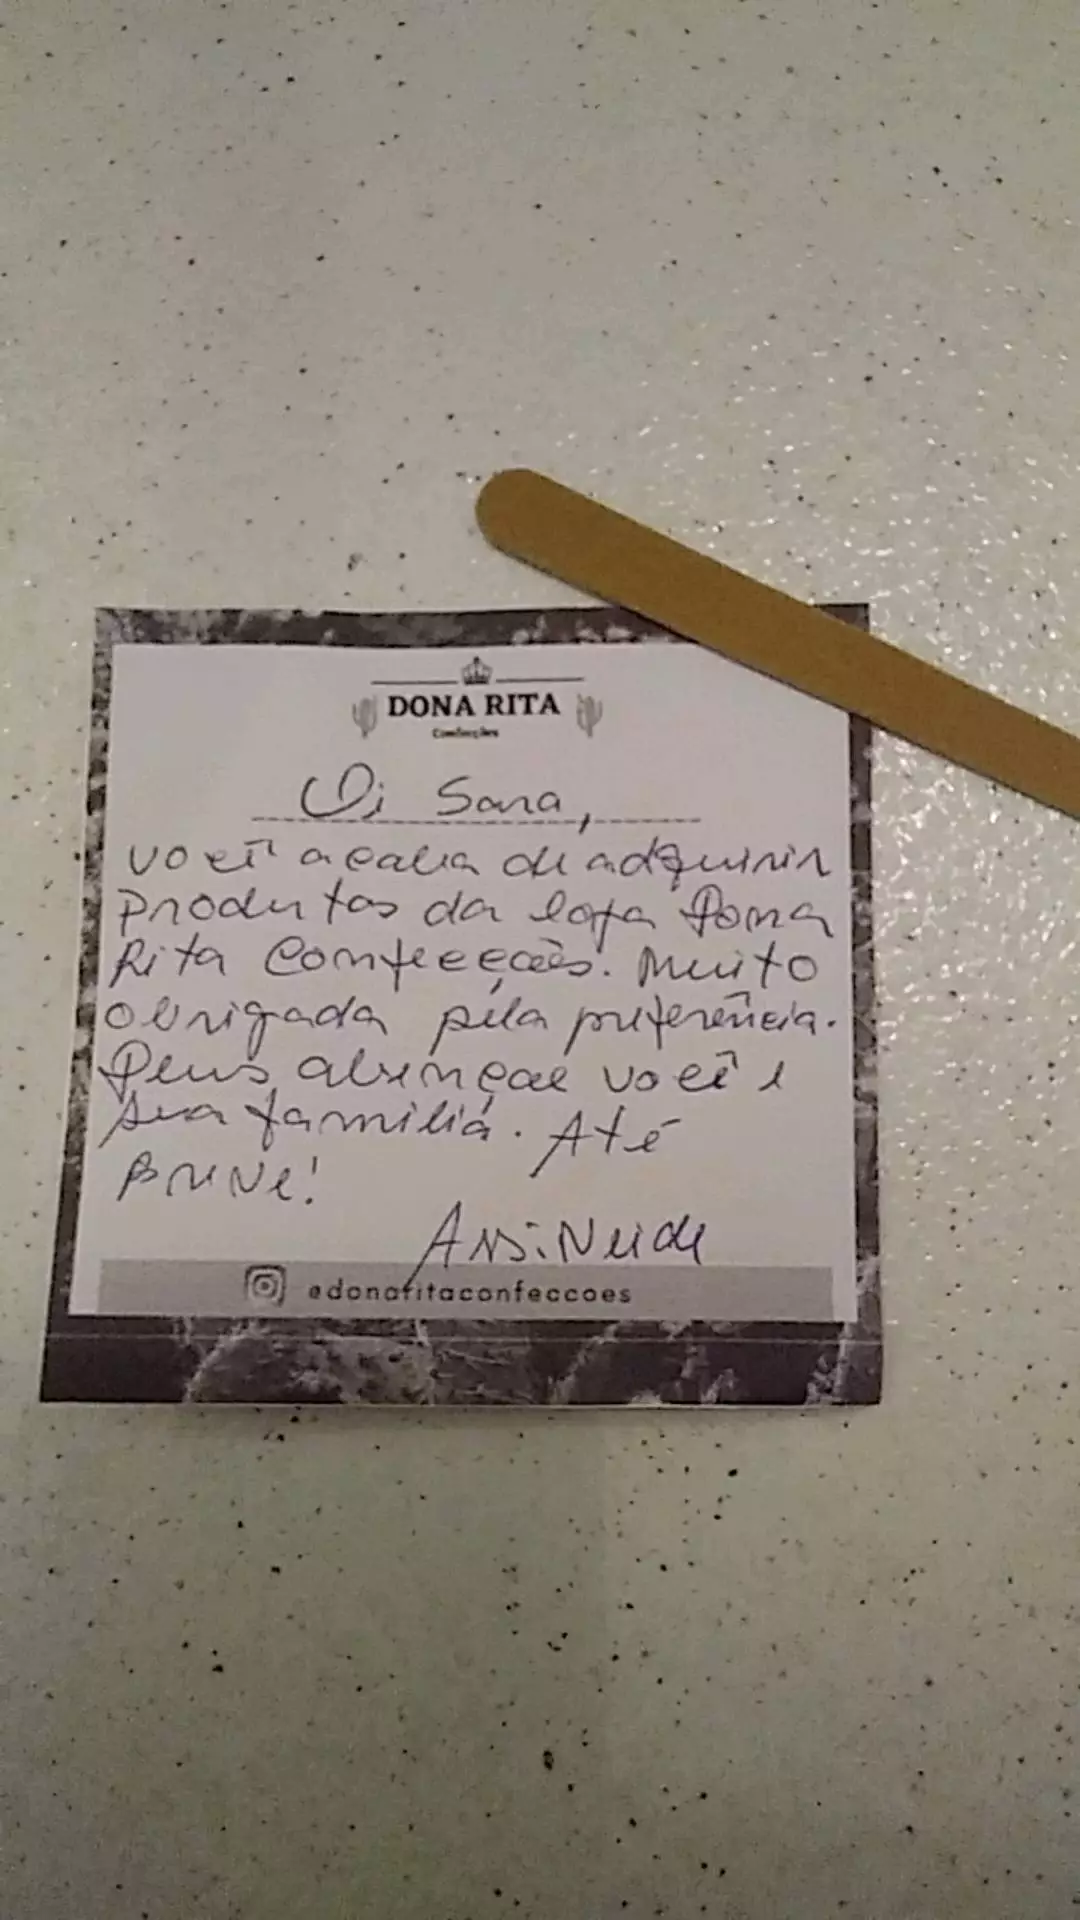 DONA RITA
Confecções
Oi Sara,
você acaba de adquirir
produtos da loja Dona
Rita Confecções. Muito
obrigada pela preferência.
Deus abençoe você e
sua família. Até
Breve!
Ass: Neide
@donaritaconfeccoes